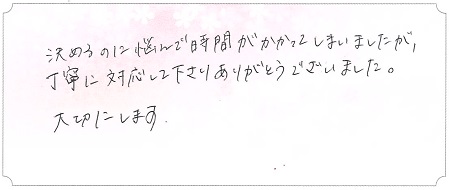 決めるのに悩んで時間がかかってしまいましたが、
丁寧に対応して下さりありがとうございました。
大切にします.